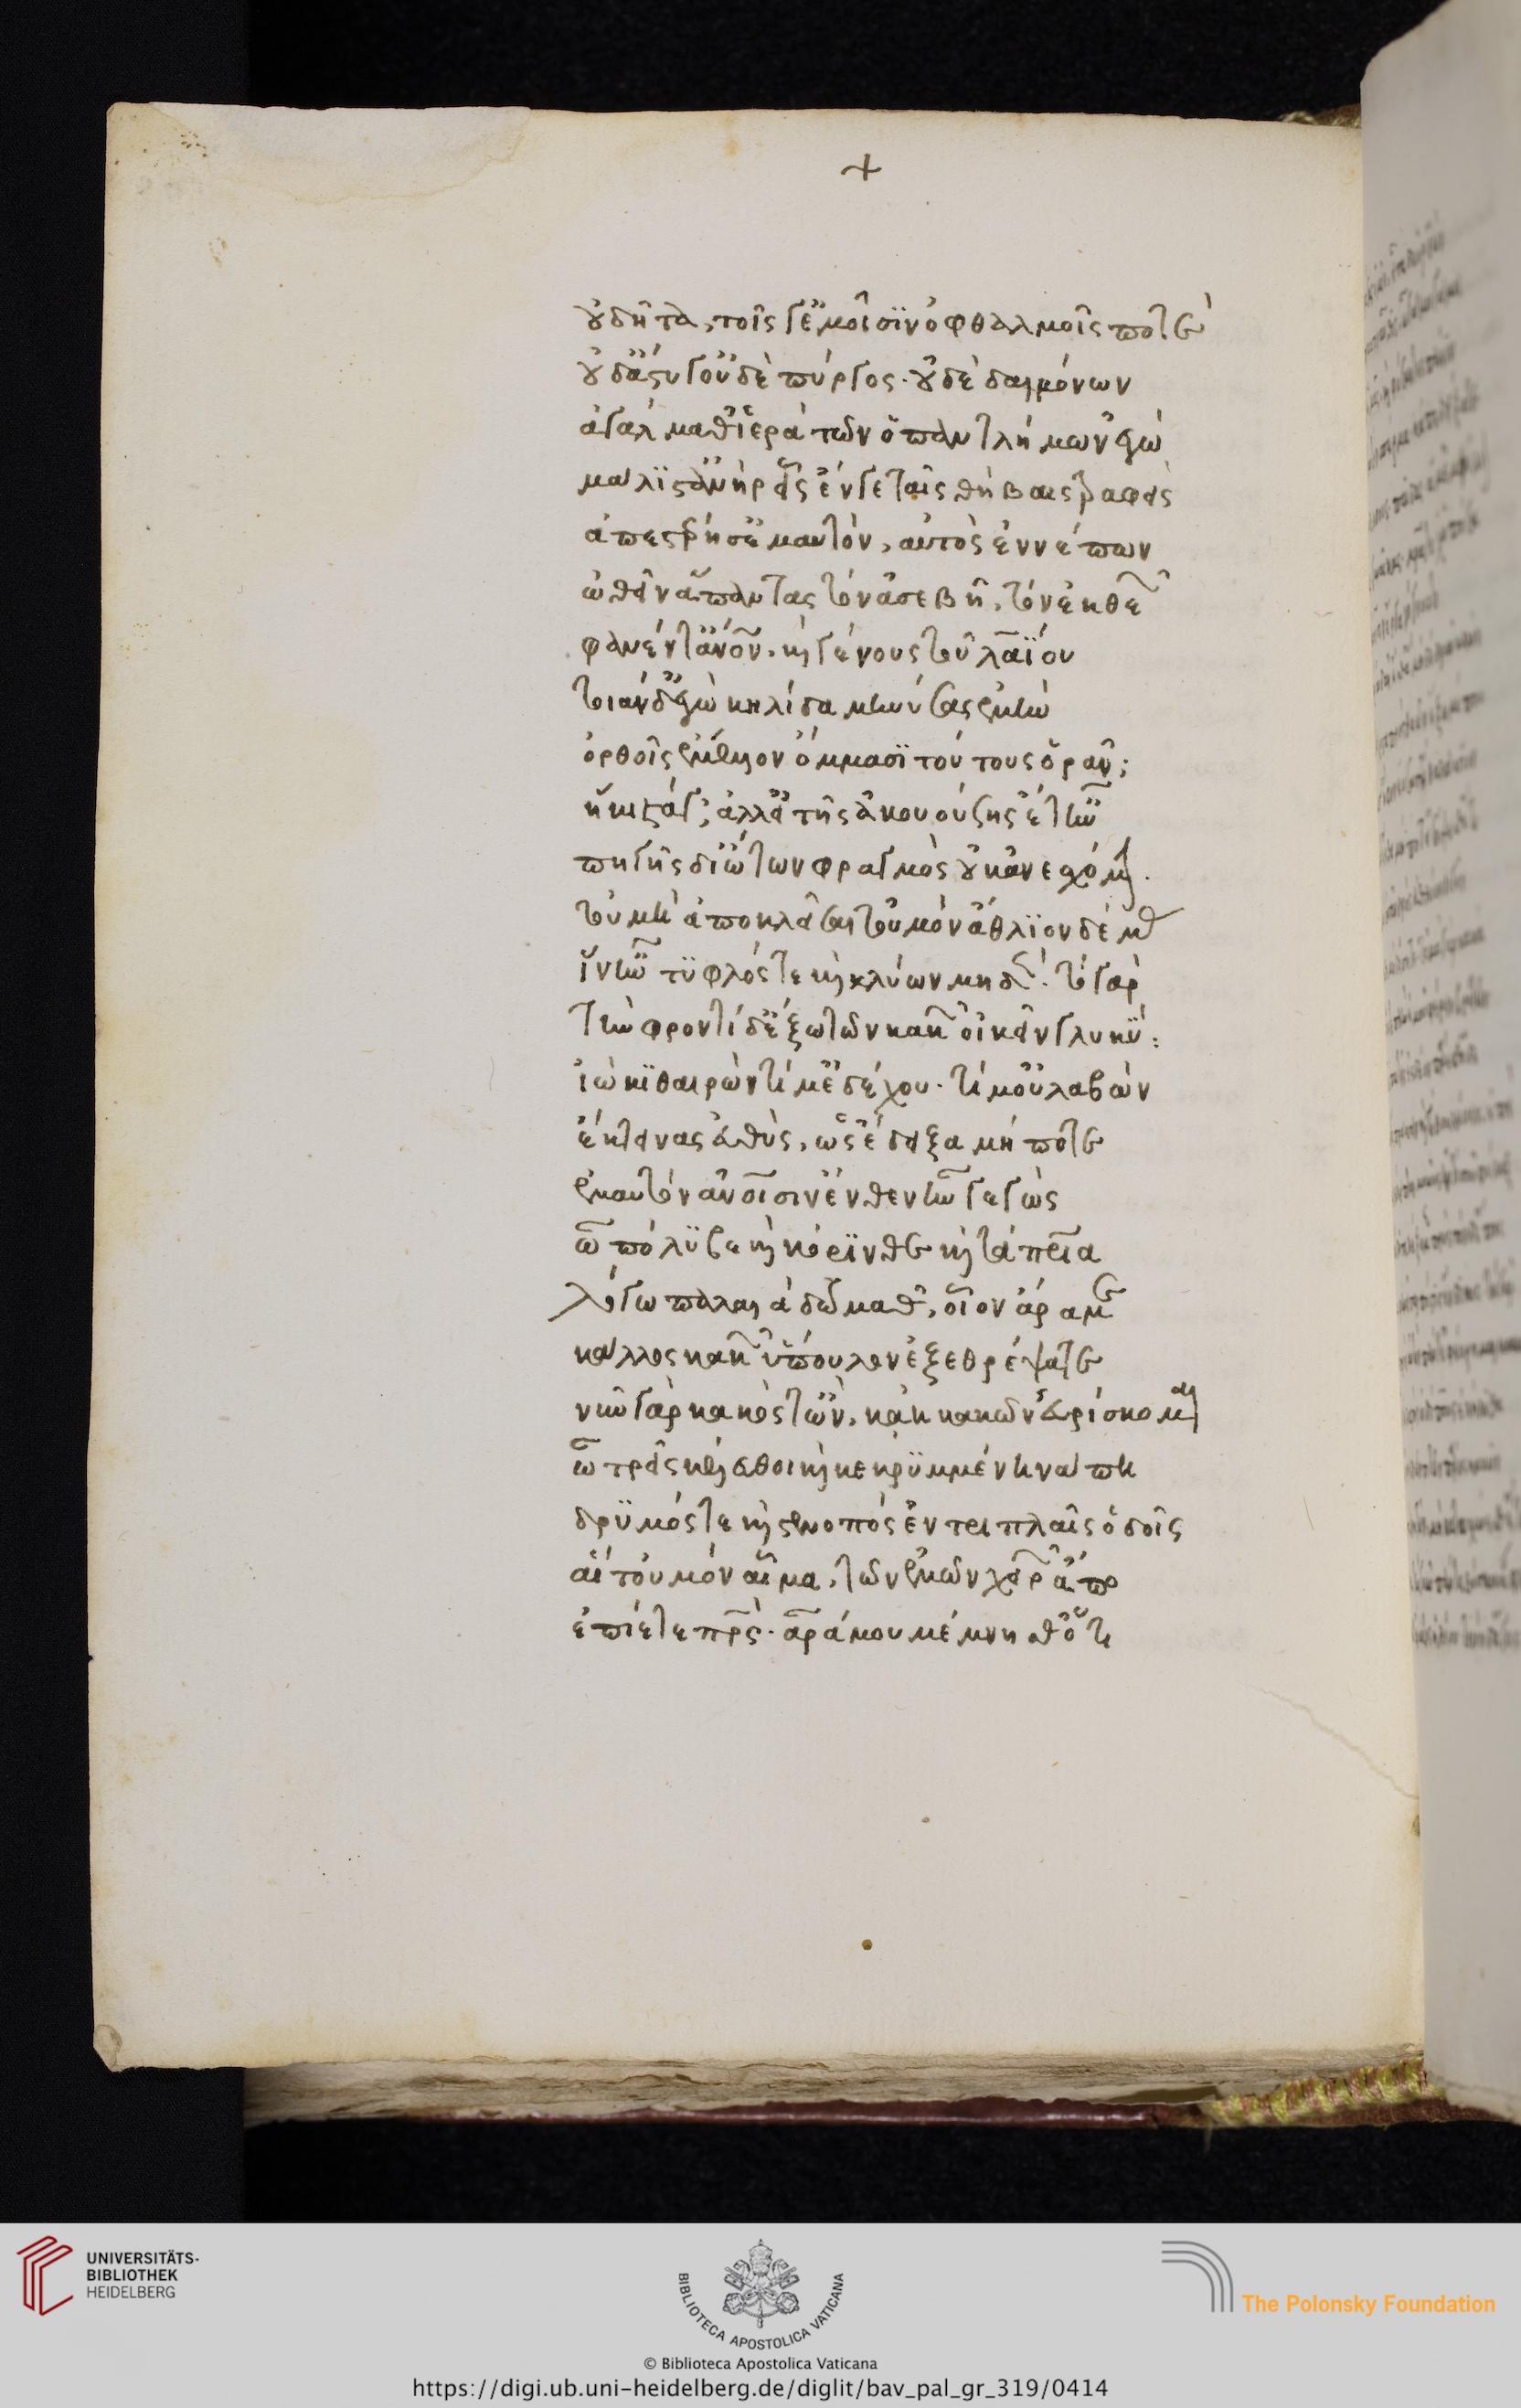 +
οὐ δῆτα, τοῖς γ' ἐμοῖσιν ὀφθαλμοῖς ποτὲ
οὐδ' ἄστυ γ' οὐδὲ πύργος· οὐδὲ δαιμόνων
ἀγάλμαθ' ἱερὰ τῶν ὁ παντλήμων ἐγὼ
κάλλιστ' ἀνὴρ εἷς ἔν γε ταῖς θήβαις τραφεὶς
ἀπεστέρησ' ἐμαυτόν, αὐτὸς ἐννέπων
ὠθεῖν ἅπαντας τὸν ἀσεβῆ, τὸν ἐκ θεῶν
φανέντ' ἄναγνον, καὶ γένους τοῦ λαΐου
τοιάνδ' ἐγὼ κηλῖδα μηνύσας ἐμὴν
ὀρθοῖς ἔμελλον ὄμμασι τούτους ὁρᾶν;
ἥκιστά γ'; ἀλλ' εἰ τῆς ἀκουούσης ἔτ' ἦν
πηγῆς δι' ὤτων φραγμὸς οὐκ ἂν ἐσχόμην·
τοῦ μὴ ἀποκλεῖσαι τοὐμὸν ἄθλιον δέμας
ἵν' ἦν τυφλός τε καὶ κλύων μηδέν· τὸ γὰρ
τὴν φροντίδ' ἔξω τῶν κακῶν οἰκεῖν γλυκύ:
ἰὼ κιθαιρὼν τί μ' ἐδέχου· τί μ' οὐ λαβὼν
ἔκτεινας εὐθύς, ὡς ἔδειξα μήποτε
ἐμαυτὸν ἀνθρώποισιν ἔνθεν ἦν γεγώς
ὦ πόλυβε καὶ κόρινθε καὶ τὰ πάτρια
λόγῳ παλαιὰ δώμαθ', οἷον ἆρά με
κάλλος κακῶν ὕπουλον ἐξεθρέψατε
νῦν γὰρ κακός τ' ὤν, κἀκ κακῶν εὑρίσκομαι
ὦ τρεῖς κέλευθοι καὶ κεκρυμμένη νάπη
δρυμός τε καὶ στενωπὸς ἐν τριπλαῖς ὁδοῖς
αἳ τοὐμὸν αἷμα, τῶν ἐμῶν χειρῶν ἄπο
ἐπίετε πατρός· ἆρά μου μέμνησθ' ὅτι
UNIVERSITÄTS-
BIBLIOTHEK
HEIDELBERG
BIBLIOTECA APOSTOLICA VATICANA
The Polonsky Foundation
© Biblioteca Apostolica Vaticana
https://digi.ub.uni-heidelberg.de/diglit/bav_pal_gr_319/0414